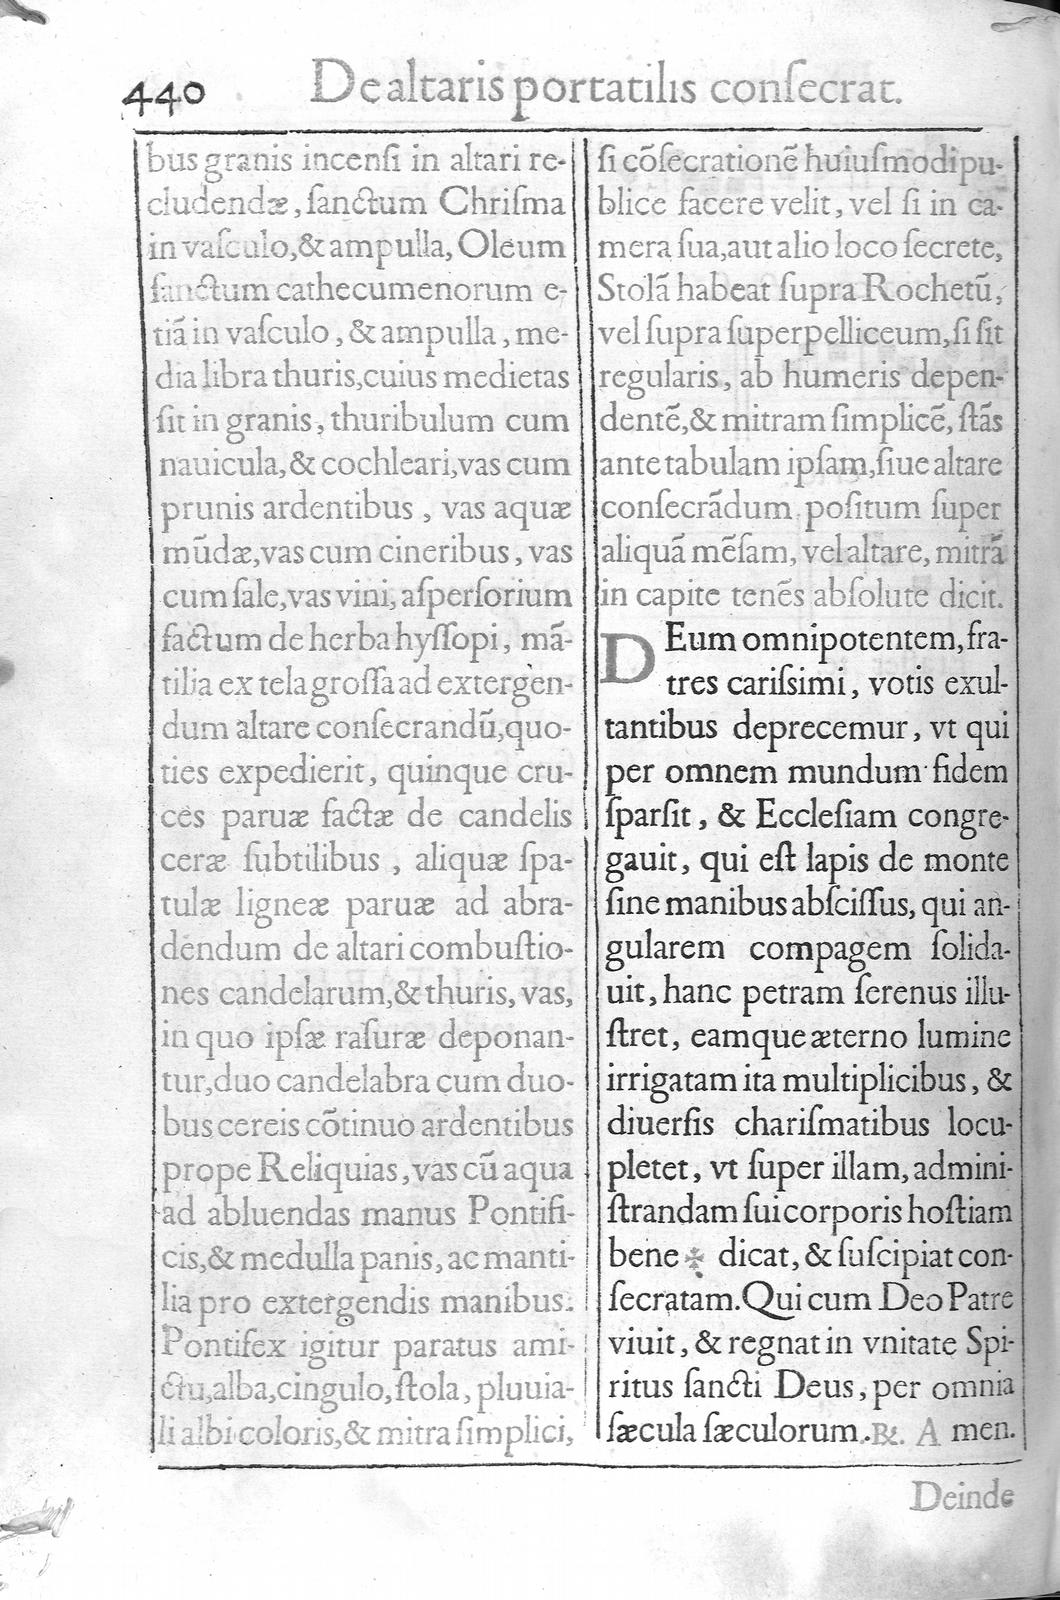 440
De altaris portatilis conſecrat.
bus granis incenſi in altari re-
cludendæ, ſanctum Chriſma
in vaſculo, & ampulla, Oleum
ſanctum cathecumenorum e-
tiã in vaſculo, & ampulla, me-
dia libra thuris, cuius medietas
ſit in granis, thuribulum cum
nauicula, & cochleari, vas cum
prunis ardentibus, vas aquæ
mũdæ, vas cum cineribus, vas
cum ſale, vas vini, aſperſorium
factum de herba hyſſopi, mã-
tilia ex tela groſſa ad extergen-
dum altare conſecrandũ, quo-
ties expedierit, quinque cru-
ces paruæ factæ de candelis
ceræ ſubtilibus, aliquæ ſpa-
tulæ ligneæ paruæ ad abra-
dendum de altari combuſtio-
nes candelarum, & thuris, vas,
in quo ipſæ raſuræ deponan-
tur, duo candelabra cum duo-
bus cereis cõtinuo ardentibus
prope Reliquias, vas cũ aqua
ad abluendas manus Pontifi-
cis, & medulla panis, ac manti-
lia pro extergendis manibus.
Pontifex igitur paratus ami-
ctu, alba, cingulo, ſtola, pluuia-
li albi coloris, & mitra ſimplici,
ſi cõſecrationẽ huiuſmodi pu-
blice facere velit, vel ſi in ca-
mera ſua, aut alio loco ſecrete,
Stolã habeat ſupra Rochetũ,
vel ſupra ſuperpelliceum, ſi ſit
regularis, ab humeris depen-
dentẽ, & mitram ſimplicẽ, ſtãs
ante tabulam ipſam, ſiue altare
conſecrãdum poſitum ſuper
aliquã mẽſam, vel altare, mitrã
in capite tenẽs abſolute dicit.
DEum omnipotentem, fra-
tres cariſsimi, votis exul-
tantibus deprecemur, vt qui
per omnem mundum fidem
ſparſit, & Eccleſiam congre-
gauit, qui eſt lapis de monte
ſine manibus abſciſſus, qui an-
gularem compagem ſolida-
uit, hanc petram ſerenus illu-
ſtret, eamque æterno lumine
irrigatam ita multiplicibus, &
diuerſis chariſmatibus locu-
pletet, vt ſuper illam, admini-
ſtrandam ſui corporis hoſtiam
bene ✠ dicat, & ſuſcipiat con-
ſecratam. Qui cum Deo Patre
viuit, & regnat in vnitate Spi-
ritus ſancti Deus, per omnia
ſæcula ſæculorum. ℞. A men.
Deinde